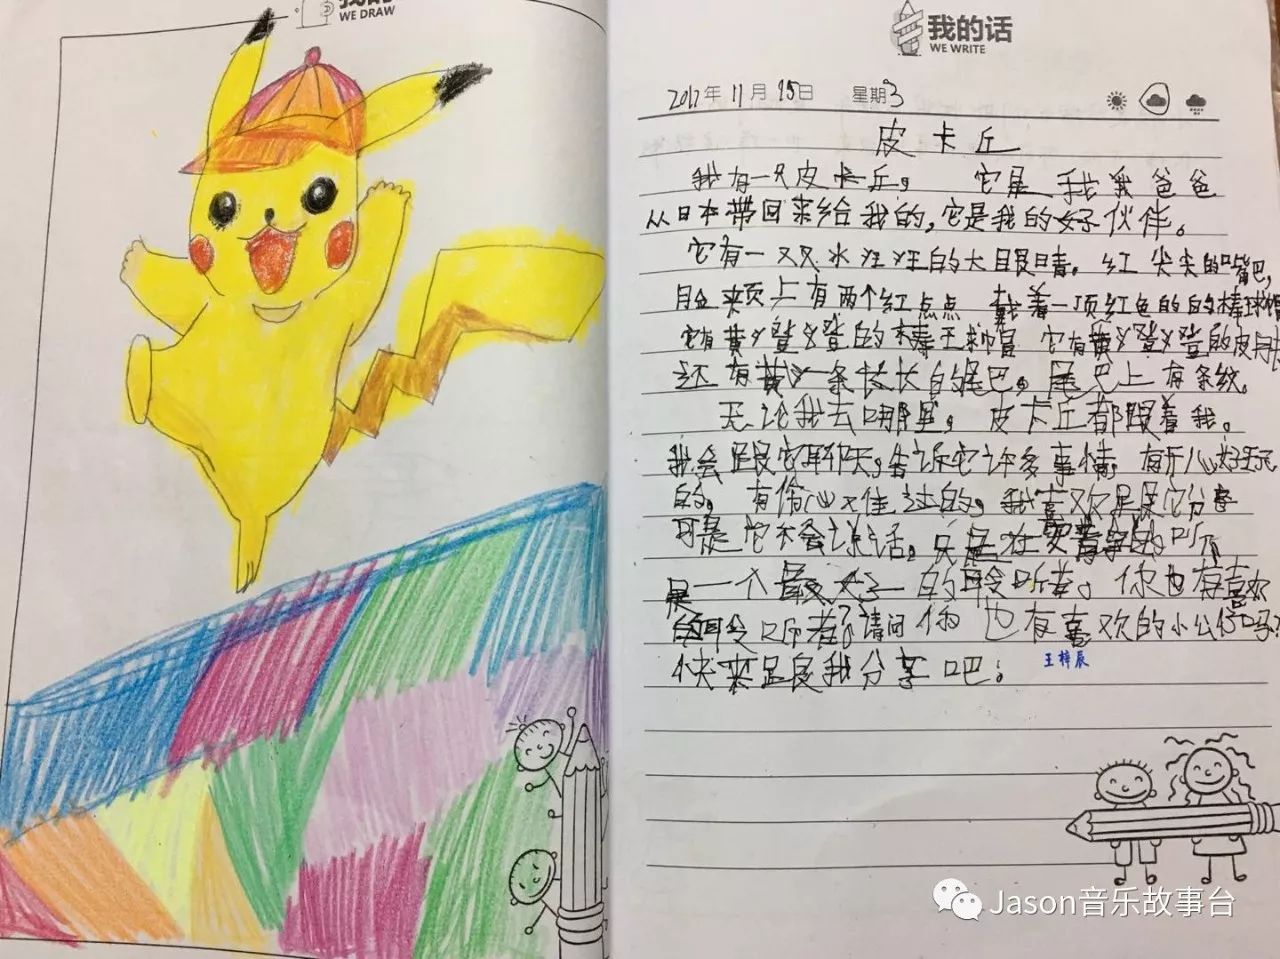 WE DRAW
我的话
WE WRITE
2017年 11月 15日 星期3
皮卡丘
我有一只皮卡丘，它是我爸爸
从日本带回来给我的，它是我的好伙伴。
它有一双水汪汪的大眼睛，红尖尖的嘴巴，
脸颊上有两个红点点 戴着一顶红色的棒球帽
它有黄澄澄的棒球帽 它有黄澄澄的皮肤
还有黄一条长长的尾巴，尾巴上有条纹。
无论我去哪里，皮卡丘都跟着我。
我会跟它聊天，告诉它许多事情，有开心好玩
的，有伤心难过的，我喜欢跟它分享
可是它不会说话，只是在安静的听
是一个最好的聆听者。你也有喜欢
的聆听者？请问你也有喜欢的小公仔吗？
快来跟我分享吧！
王梓辰
Jason音乐故事台